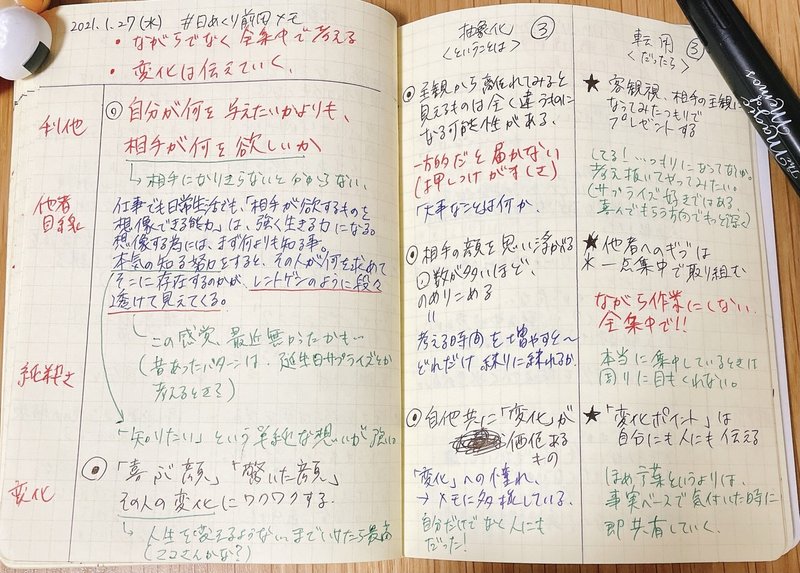 2021.1.27(水) #日めくり前田メモ
・ながらでなく全集中で考える
・変化は伝えていく、
利他
自分が何を与えたいかよりも、
相手が何を欲しいか
→相手になりきらないと分からない、
他者
目線
仕事でも日常生活でも、「相手が欲するものを
想像できる能力」は、強く生きる力になる。
想像する為には、まず何よりも知る事。
本気の知る努力をすると、その人が何を求めて
そこに存在するのかが、レントゲンのように段々
透けて見えてくる。
この感覚、最近無かったかも…
(昔あったパターンは、誕生日サプライズとか
考えるとき)
純粋さ
「知りたい」という単純な想いが強い
変化
「喜ぶ顔」「驚いた顔」
その人の変化にワクワクする。
→人生を変えるような、、までいけたら最高
(ココさんかな?)
抽象化 ③
<ということは>
主観から離れてみると
見えるものは全く違うものに
なる可能性がある、
一方的だと届かない
(押しつけがすぐさ)
「大事なことは何か、
相手の顔を思い浮かべる
回数が多いほど、
のめりこめる
=
考える時間を増やすと〜
どれだけ練りに練れるか、
自他共に「変化」が
価値ある
もの
「変化」への憧れ、
→メモに多様している、
自分だけでなく人にも
だった!
転用 ③
<だったら>
★客観視、相手の主観に
なってみたつもりで
プレゼントする
してる!…つもりになってないか、
考え抜いてやってみたい。
(サプライズ好きではある、
喜んでもらう方向でもっと深く)
★他者へのギブは
一点集中で取り組む
ながら作業にしない、
全集中で!!
本当に集中しているときは
周りに目もくれない。
★「変化ポイント」は
自分にも人にも伝える
ほめ言葉というよりは、
事実ベースで気付いた時に
即共有していく、
The Magic of Memos